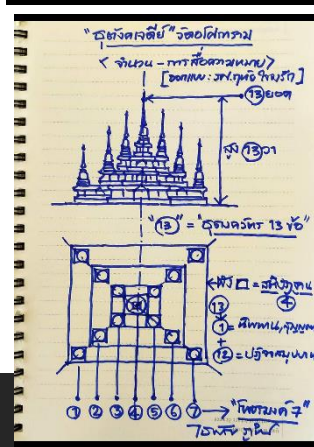 "ธุตังคเจดีย์" วัดอโศการาม
< จำนวน - การสื่อความหมาย >
[ออกแบบ: รศ.ฤทัย ใจจงรัก]
13 ยอด
สูง 13 วา
"13" = "ธุดงควัตร 13 ข้อ"
ผัง □ =
4
13
1 = นิพพาน,
+
12 =
1 2 3 4 5 6 7 → "โพชฌงค์ 7"